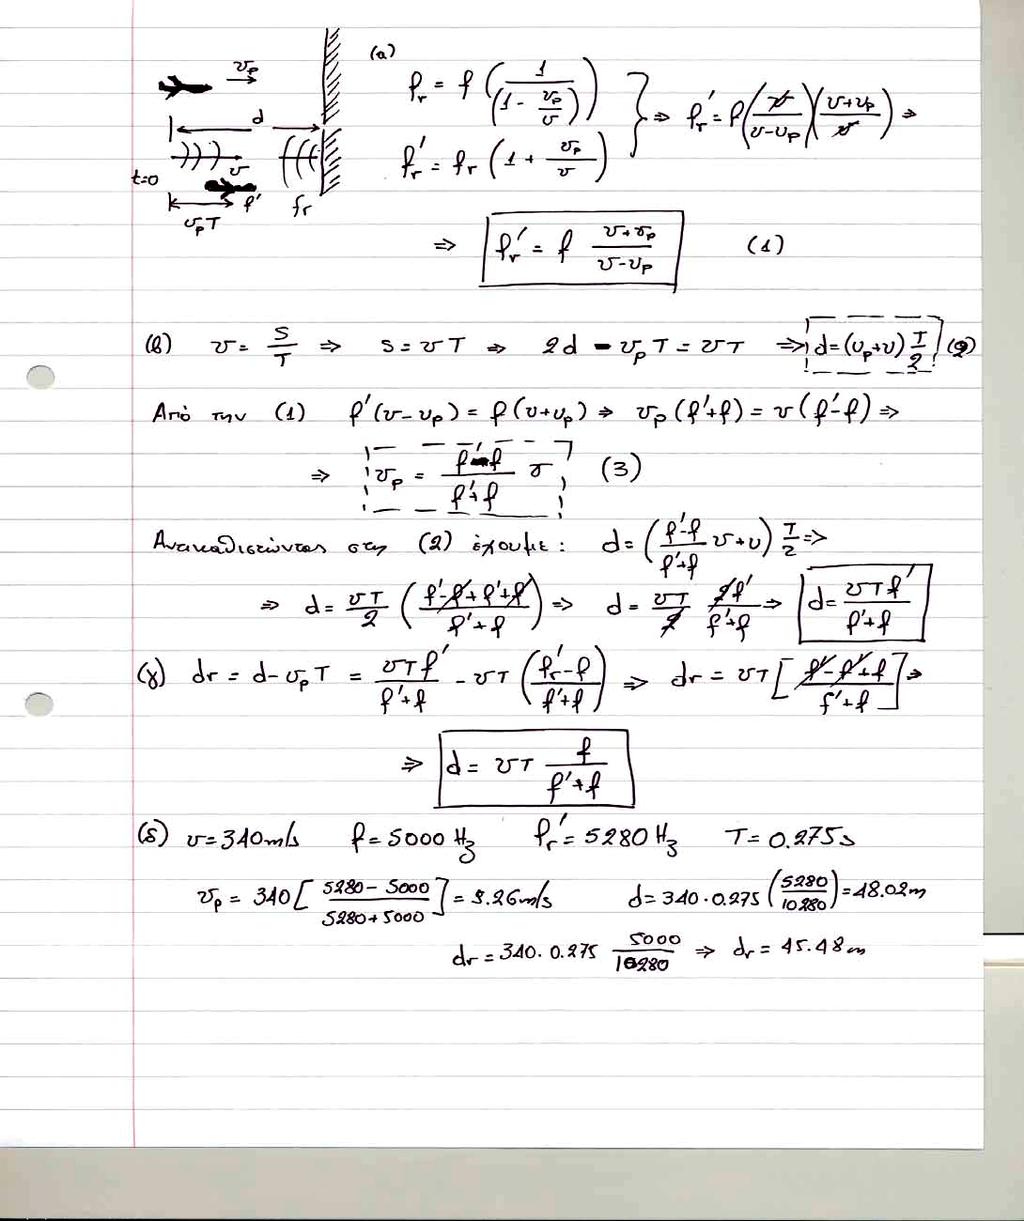 υp
d
t=0 υ
f' fr
υpT
(α) fr = f (1/(1 - υp/υ))
fr' = fr (1 + υp/υ) } ⇒ fr' = f (υ/(υ-υp)) ((υ+υp)/υ) ⇒
⇒ fr' = f (υ+υp)/(υ-υp) (1)
(β) υ = S/T ⇒ S = υT ⇒ 2d - υpT = υT ⇒ d = (υp+υ) T/2 (2)
Από την (1) f'(υ-υp) = f(υ+υp) ⇒ υp(f'+f) = υ(f'-f) ⇒
⇒ υp = (f'-f)/(f'+f) υ (3)
Αντικαθιστώντας στη (2) έχουμε: d = ((f'-f)/(f'+f) υ+υ) T/2 ⇒
⇒ d = υT/2 ((f'-f+f'+f)/(f'+f)) ⇒ d = υT/2 2f'/(f'+f) ⇒ d = υTf'/(f'+f)
(γ) dr = d-υpT = υTf'/(f'+f) - υT ((fr'-f)/(f'+f)) ⇒ dr = υT [(f'-f'+f)/(f'+f)] ⇒
⇒ d = υT f/(f'+f)
(δ) υ=340m/s f=5000Hz fr'=5280Hz T=0.275s
υp = 340 [(5280-5000)/(5280+5000)] = 9.26m/s d=340·0.275 (5280/10280) = 48.02m
dr = 340·0.275 5000/10280 ⇒ dr = 45.48m